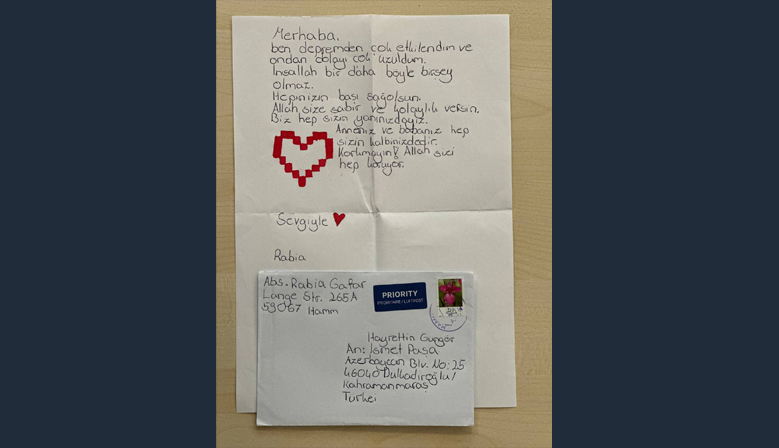 Merhaba,
ben depremden çok etkilendim ve
ondan dolayı çok üzüldüm.
İnsallah bir daha böyle birşey
olmaz.
Hepinizin bası sağolsun.
Allah size sabir ve kolaylık versin.
Biz hep sizin yanınızdayız.
Anneniz ve babanız hep
sizin kalbinizdedir.
Korkmayın! Allah sizi
hep koruyor.
Sevgiyle
Rabia
Abs. Rabia Gaffar
Lange Str. 265A
59067 Hamm
PRIORITY
PRIORITAIRE / LUFTPOST
Hayrettin Gungör
An: İsmet Paşa
Azerbaycan Blv. No: 25
46040 Dulkadiroğlu/
Kahramanmaraş
Türkei